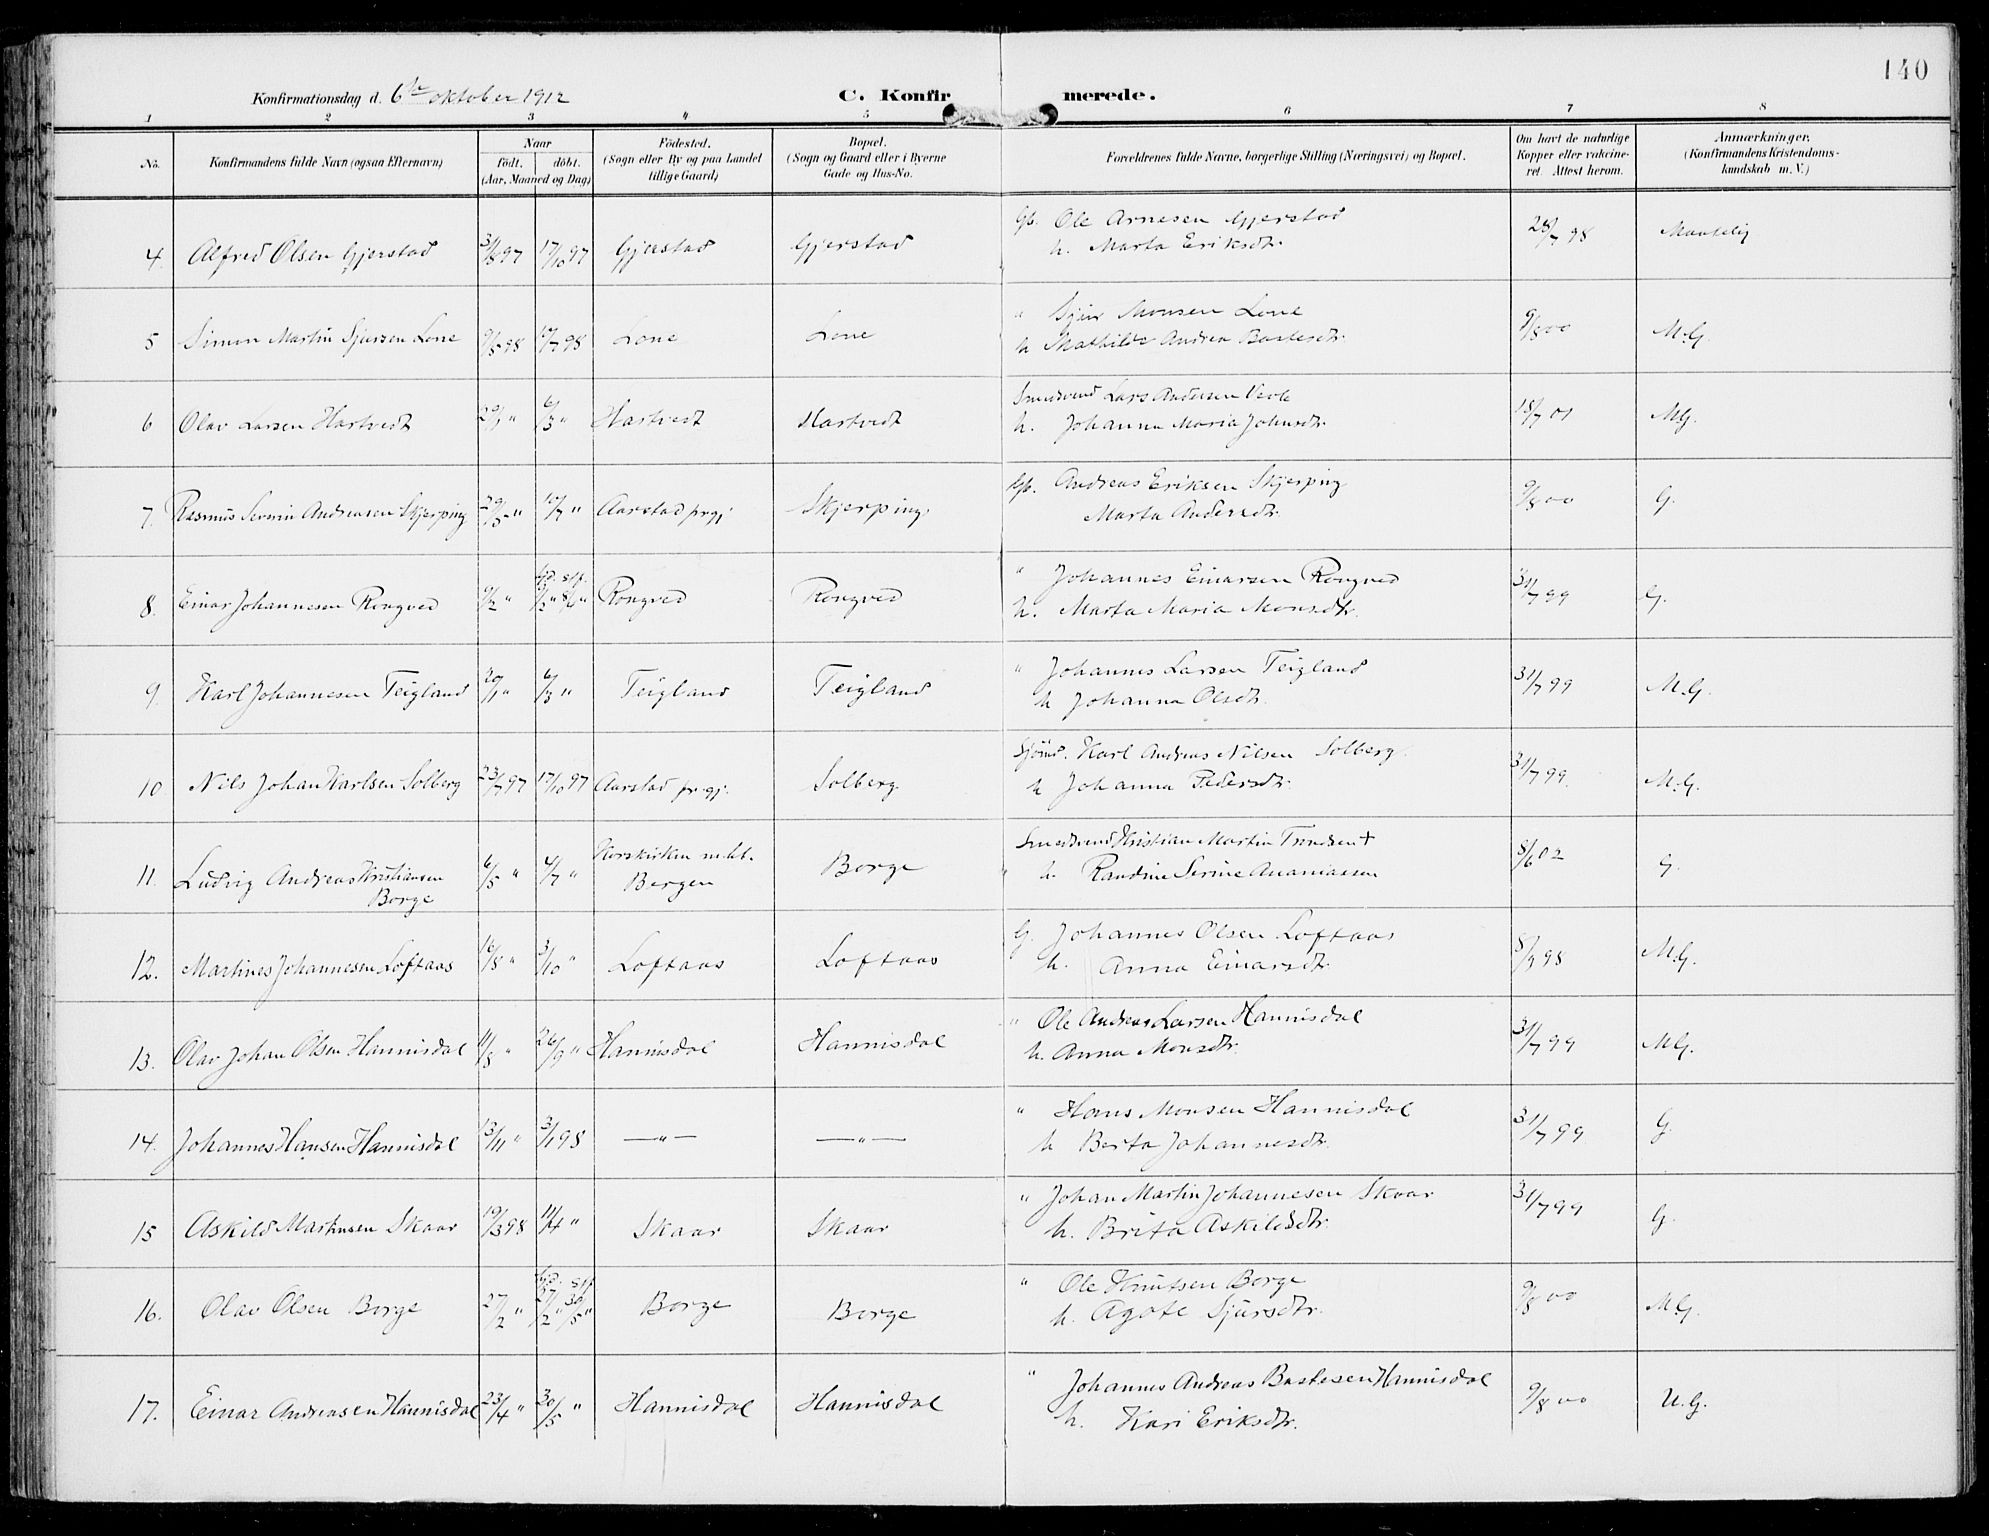 140
Konfirmationsdag d. 6te oktober 1912 C. Konfirmerede.
1 2 3 4 5 6 7 8
No. Konfirmandens fulde Navn (ogsaa Efternavn) Naar födt. döbt. (Aar, Maaned og Dag) Födested. (Sogn eller By og paa Landet tillige Gaard) Bopæl. (Sogn og Gaard eller i Byerne Gade og Hus-No. Forældrenes fulde Navne, borgerlige Stilling (Næringsvei) og Bopæl. Om havt de naturlige Kopper eller vakcineret. Attest herom. Anmærkninger. (Konfirmandens Kristendomskundskab m. V.)
Gb. Ole Arnesen Gjerstad
4. Alfred Olsen Gjerstad 31/8 97 17/10 97 Gjerstad Gjerstad h. Marta Eriksdtr. 28/7 98 Maadelig
" Sjur Monsen Lone
5 Simon Martin Sjursen Lone 9/5 98 17/7 98 Lone Lone h Mathilde Andrea Bastesdtr. 9/8 00 M.G.
Lars Andersen
6 Olav Larsen Hartvedt 29/1 " 6/3 " Hartvedt Hartvedt h. Johanna Maria Johnsdtr. 15/7 01 MG.
Gb. Andreas Eriksen Skjerping
7. Rasmus Severin Andreasen Skjerping 29/5 " 10/7 " Aarstad prgj Skjerping Marta Andersdtr. 9/8 00 G.
" Johannes Einarsen Rongved
8. Einar Johannesen Rongved 9/2 " 9/2 " 8/6 " Rongved Rongved h. Marta Maria Monsdtr. 31/7 99 G.
" Johannes Larsen Teigland
9. Karl Johannesen Teigland 20/1 " 6/3 " Teigland Teigland h Johanna Olsdtr. 31/7 99 M.G.
Sjömd. Karl Andreas Nilsen Solberg.
10 Nils Johan Karlsen Solberg 23/7 97 17/10 97 Aarstad pr.gj. Solberg h Johanna Pedersdtr. 31/7 99. M.G.
Kristian Martin +
11. Ludvig Andreas Kristiansen Borge 6/5 " 4/7 " Korskirken Bergen Borge h. Randine Serine Ananiassen 5/6 02 G.
G. Johannes Olsen Loftaas
12. Martines Johannesen Loftaas 16/8 " 3/10 " Loftaas Loftaas h. Anna Einarsdtr 5/9 98 M.G.
" Ole Andreas Larsen Hannisdal
13. Olav Johan Olsen Hannisdal 11/8 " 26/9 " Hannisdal Hannisdal h. Anna Monsdtr. 31/7 99 MG.
" Hans Monsen Hannisdal
14. Johannes Hansen Hannisdal 13/11 " 3/1 98 —"— —"— h Berta Johannesdtr. 31/7 99 G.
" Johan Martin Johannesen Skaar
15 Askild Martinsen Skaar 19/3 98 11/4 " Skaar Skaar h. Brita Askildsdtr. 31/7 99 G.
" Ole Knutsen Borge
16. Olav Olsen Borge 27/2 " 27/2 " 30/5 " Borge Borge h. Agate Sjursdtr. 9/8 00 M.G.
" Johannes Andreas Bastesen Hannisdal
17. Einar Andreasen Hannisdal 23/4 " 30/5 " Hannisdal Hannisdal h. Kari Eriksdtr. 9/8 00 U.G.